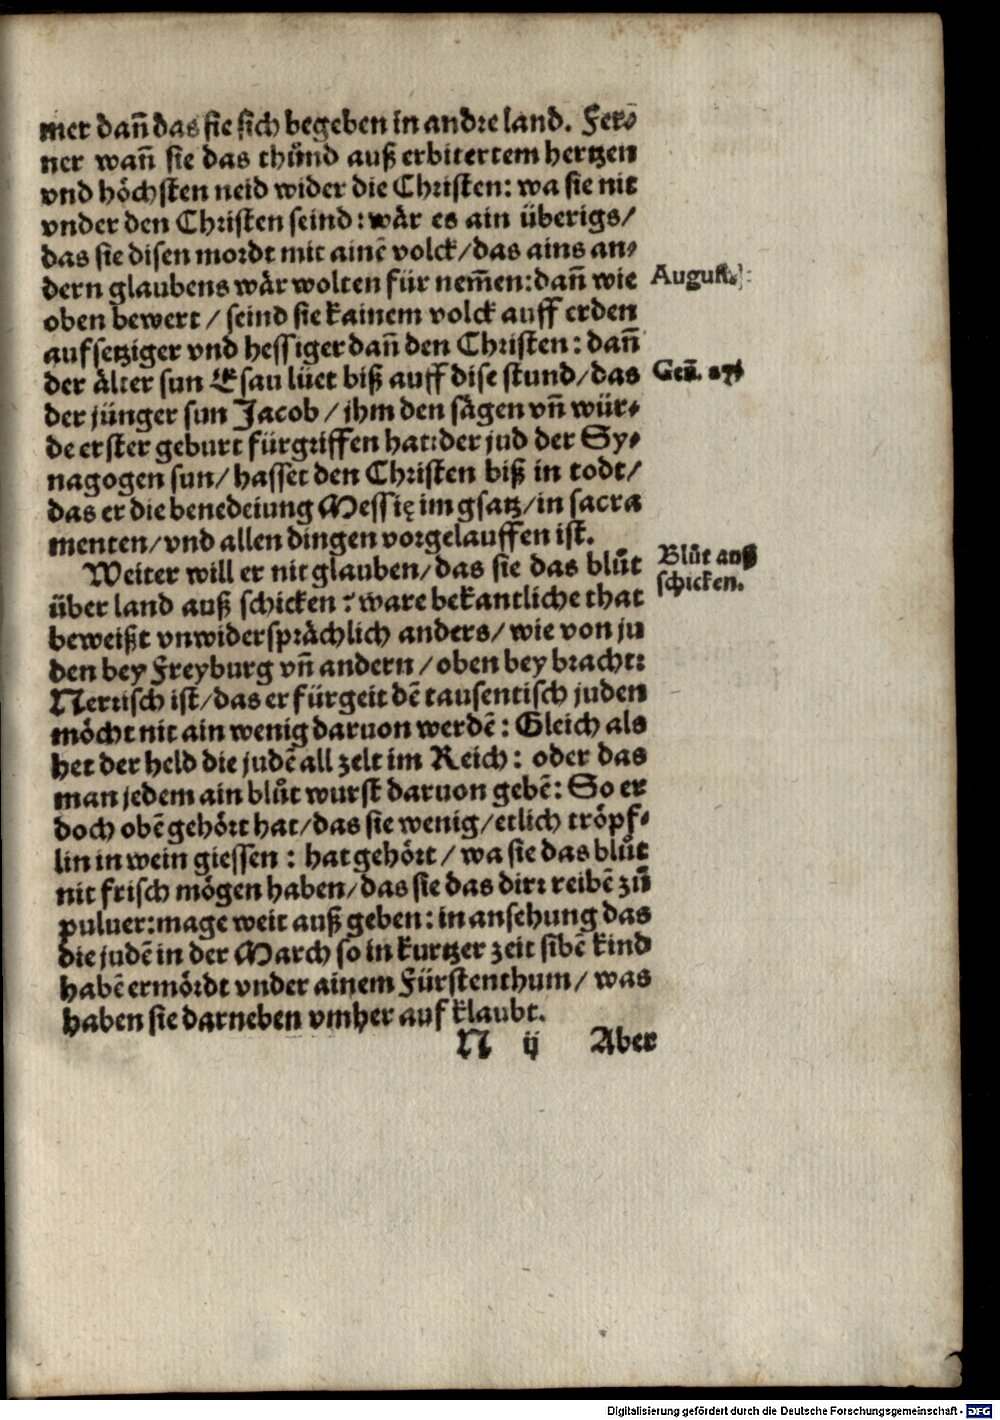 mer dan̄ das sie sich begeben in andre land. Fer⸗
ner wan̄ sie das thůnd auß erbitertem hertzen
vnd höchsten neid wider die Christen: wa sie nit
vnder den Christen seind: wår es ain überigs/
das sie disen mordt mit ainē volck/das ains an⸗
dern glaubens wår wolten für nem̄en: dan̄ wie
August.
oben bewert / seind sie kainem volck auff erden
aufsetziger vnd hessiger dan̄ den Christen: dan̄
der ålter sun Esau lüet biß auff dise stund/das
Gen̄. 27
der jünger sun Jacob / jhm den sågen vn̄ wür⸗
de erster geburt fürgriffen hat: der jud der Sy⸗
nagogen sun/ hasset den Christen biß in todt/
das er die benedeiung Messię im gsatz/in sacra
menten/vnd allen dingen vorgelauffen ist.
Weiter will er nit glauben/das sie das blůt
Blůt auß
schicken.
über land auß schicken: ware bekantliche that
beweißt vnwidersprächlich anders/ wie von ju
den bey Freyburg vn̄ andern / oben bey bracht:
Nerrisch ist/das er fürgeit dē tausentisch juden
möcht nit ain wenig daruon werdē: Gleich als
het der held die judē all zelt im Reich: oder das
man jedem ain blůt wurst daruon gebē: So er
doch obē gehört hat/das sie wenig/etlich tröpf⸗
lin in wein giessen: hat gehört / wa sie das blůt
nit frisch mögen haben/das sie das dirr reibē zů
puluer: mage weit auß geben: in ansehung das
die judē in der March so in kurtzer zeit sibē kind
habē ermördt vnder ainem Fürstenthum/ was
haben sie darneben vmher auf klaubt.
N ij Aber
Digitalisierung gefördert durch die Deutsche Forschungsgemeinschaft - DFG